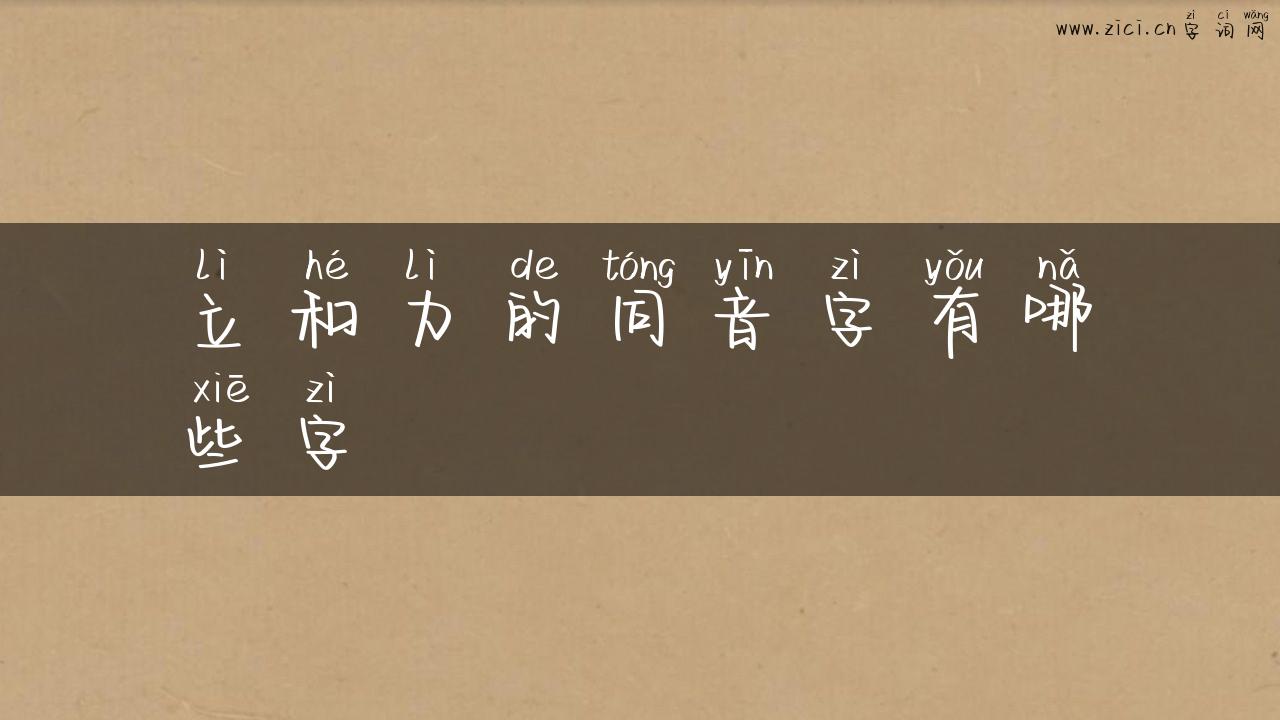 zì cí wǎng
www.zici.cn 字词网
lì hé lì de tóng yīn zì yǒu nǎ
立和力的同音字有哪
xiē zì
些字